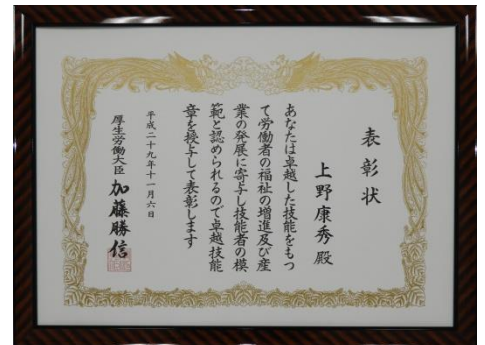 表彰状
上野康秀殿
あなたは卓越した技能をもつ
て労働者の福祉の増進及び産
業の発展に寄与し技能者の模
範と認められるので卓越技能
章を授与して表彰します
平成二十九年十一月六日
厚生労働大臣 加藤勝信